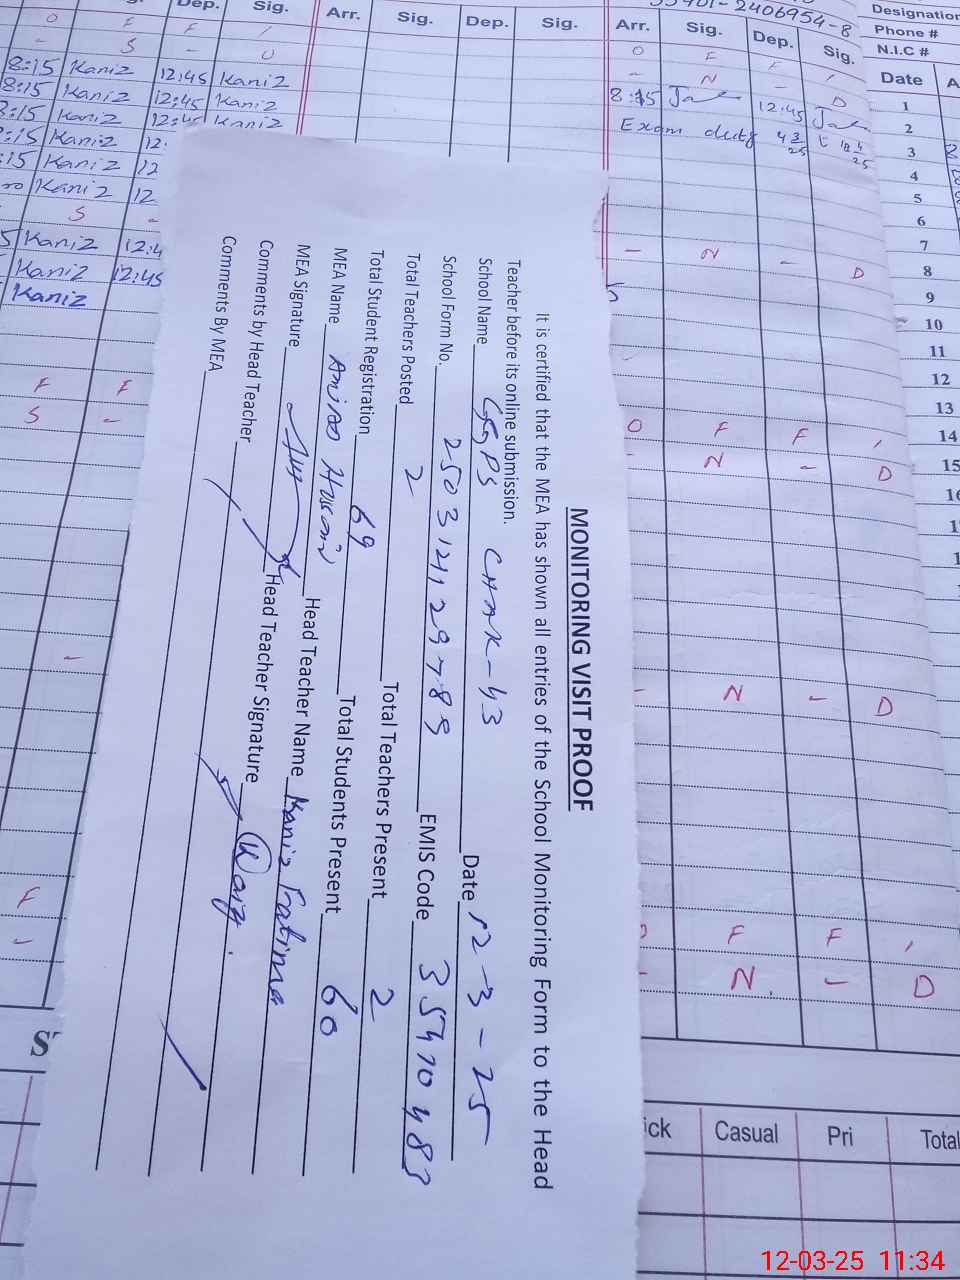 MONITORING VISIT PROOF
It is certified that the MEA has shown all entries of the School Monitoring Form to the Head
Teacher before its online submission.
School Name GGPS CHAK-43 Date 12-3-25
School Form No. EMIS Code 35410483
Total Teachers Posted 2 Total Teachers Present 2
Total Student Registration 69 Total Students Present 60
MEA Name Hussain Head Teacher Name Kaniz Fatima
MEA Signature Head Teacher Signature
Comments by Head Teacher
Comments By MEA
Dep. Sig. Arr. Sig. Dep. Sig. Arr. Sig. Dep. Sig.
O F F /
- S - U
8:15 Kaniz 12:45 Kaniz
8:15 Kaniz 12:45 Kaniz
8:15 Kaniz 12:45 Kaniz
:15 Kaniz 12:
:15 Kaniz 12
Kaniz 12
S -
5 Kaniz 12:4
Kaniz 12:45
Kaniz
F F
S -
-
F
-
2406954-8
O F F /
- N - D
8:15 12:45
Exam duty 4 3 25 t 25
- N - D
O F F /
- N - D
- N - D
F F /
- N - D
Designation
Phone #
N.I.C #
Date A
1
2
3
4
5
6
7
8
9
10
11
12
13
14
15
16
1
ick Casual Pri Total
12-03-25 11:34